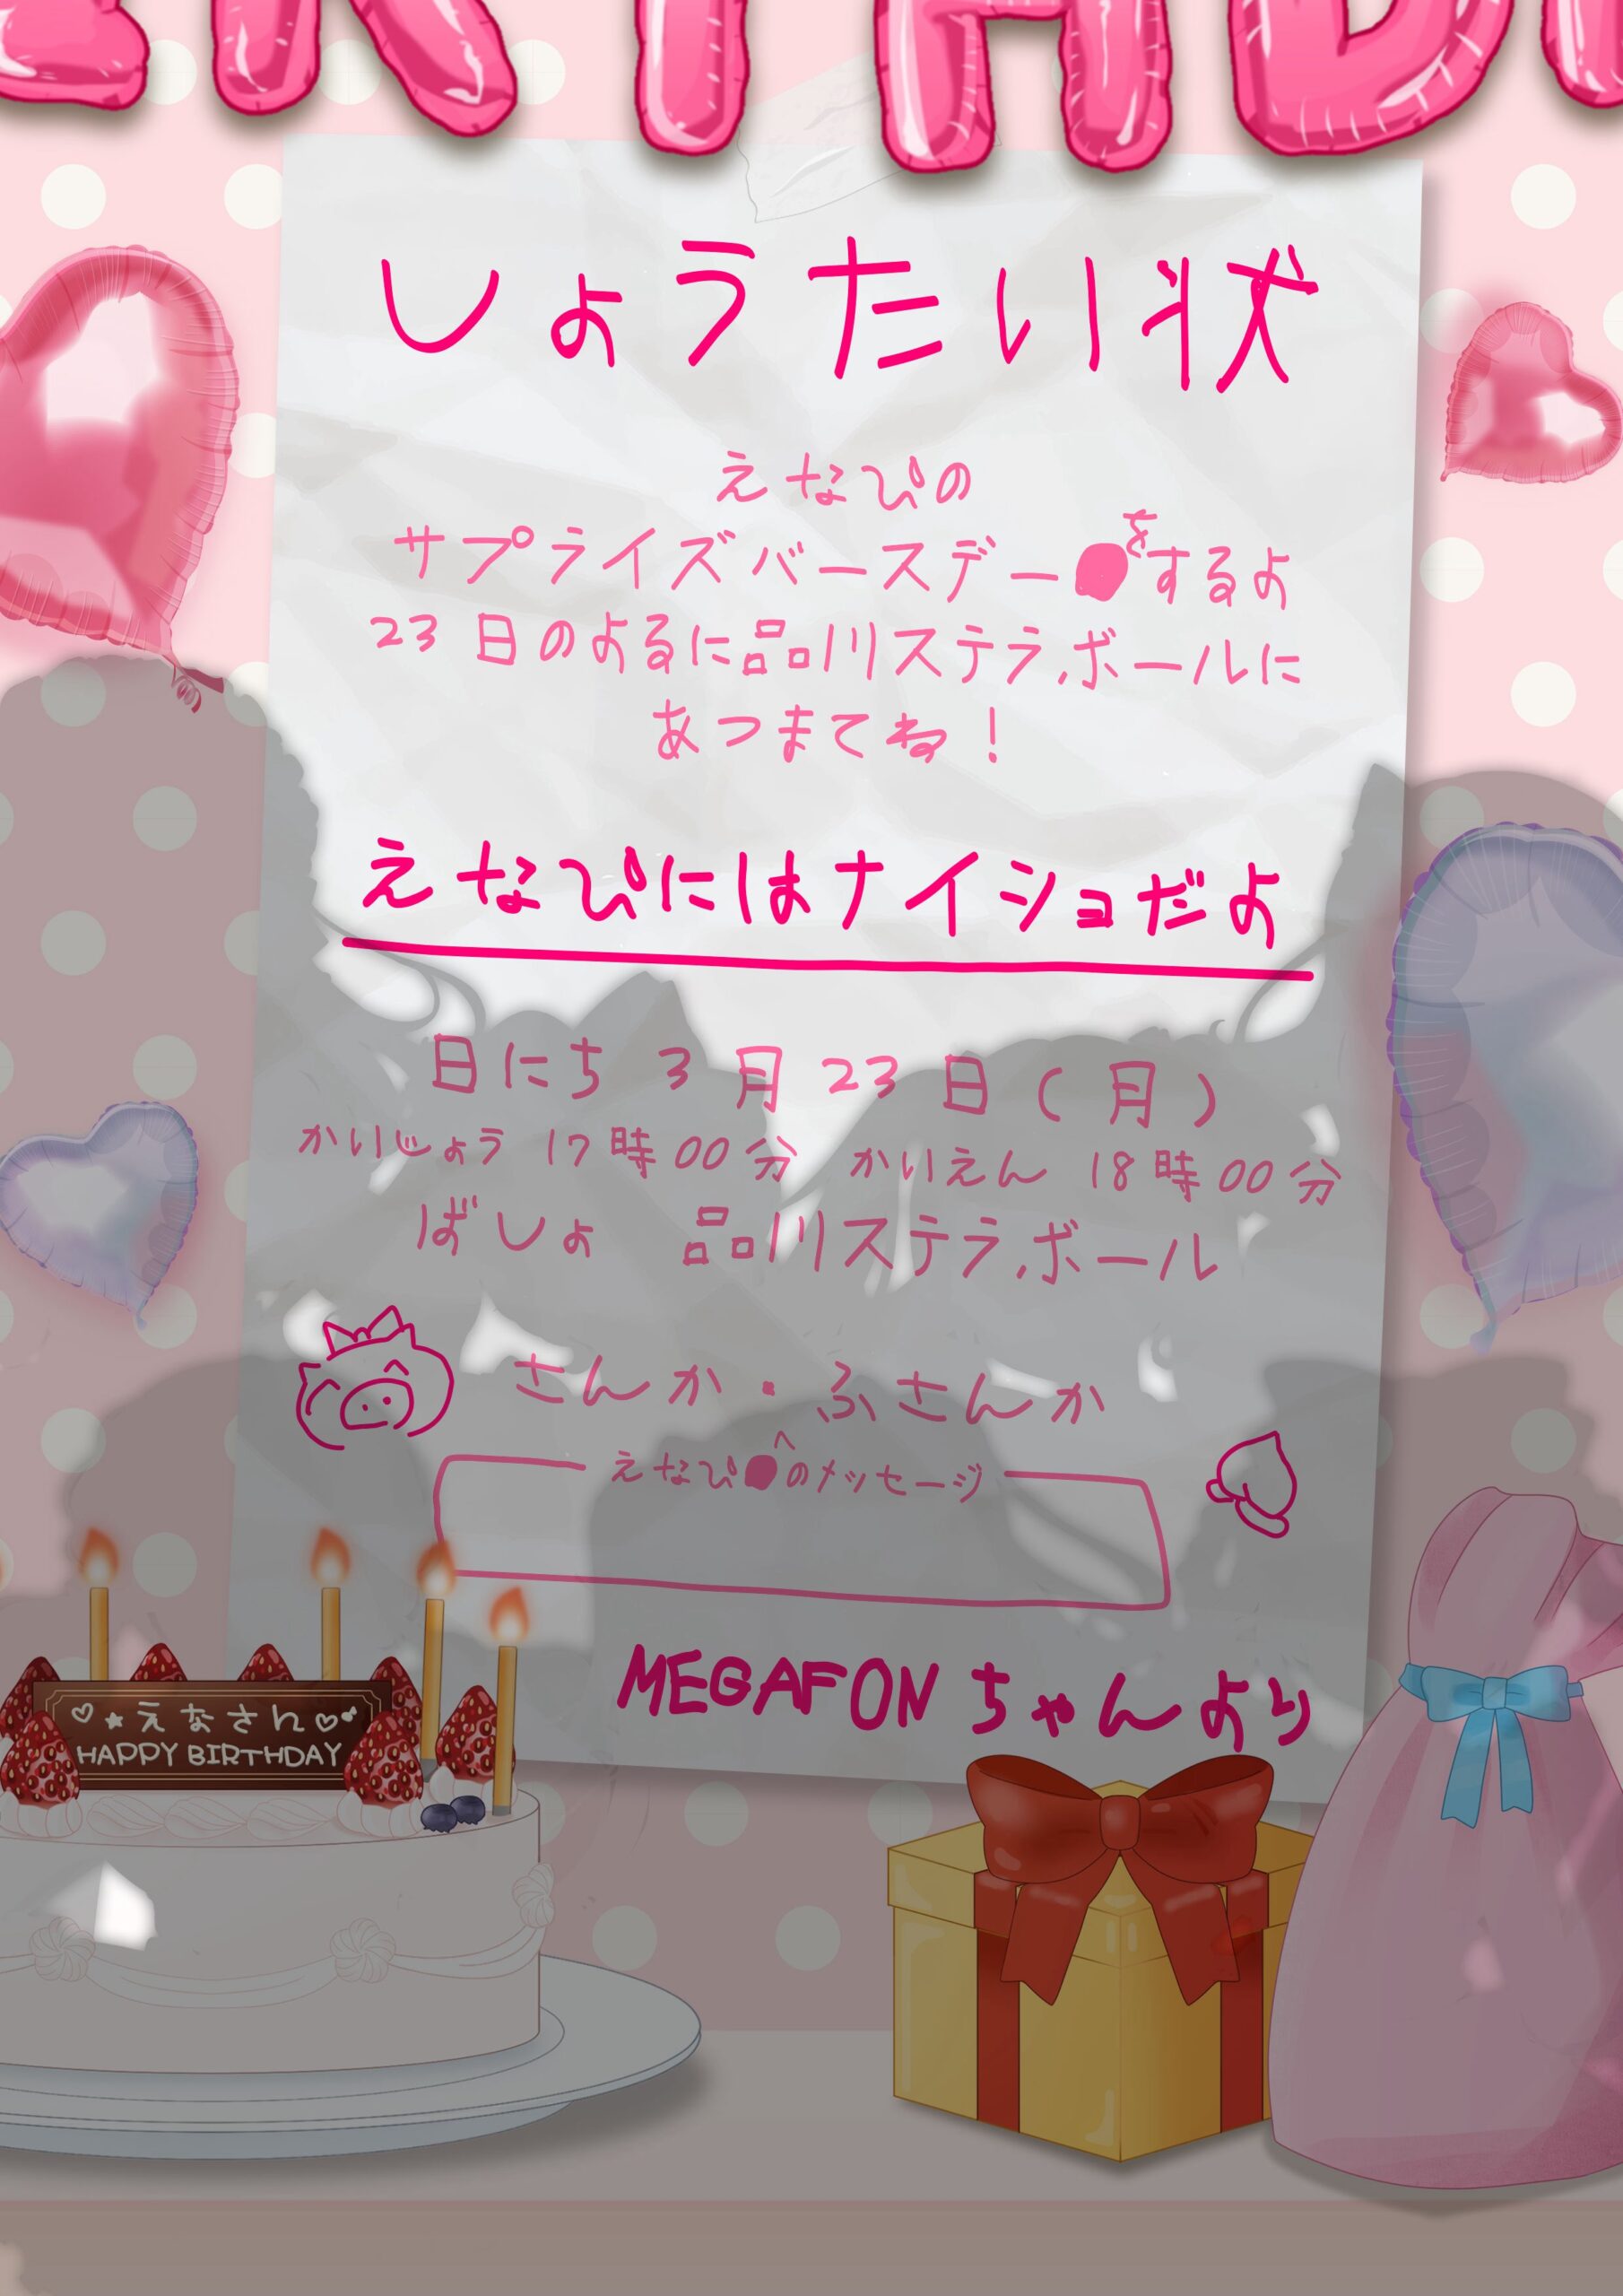 しょうたい状
えなぴの
サプライズバースデーをするよ
23日のよるに品川ステラボールに
あつまてね！
えなぴにはナイショだよ
日にち 3月23日(月)
かいじょう 17時00分 かいえん 18時00分
ばしょ 品川ステラボール
さんか・ふさんか
えなぴへのメッセージ
MEGAFONちゃんより
♡★えなさん♡
HAPPY BIRTHDAY